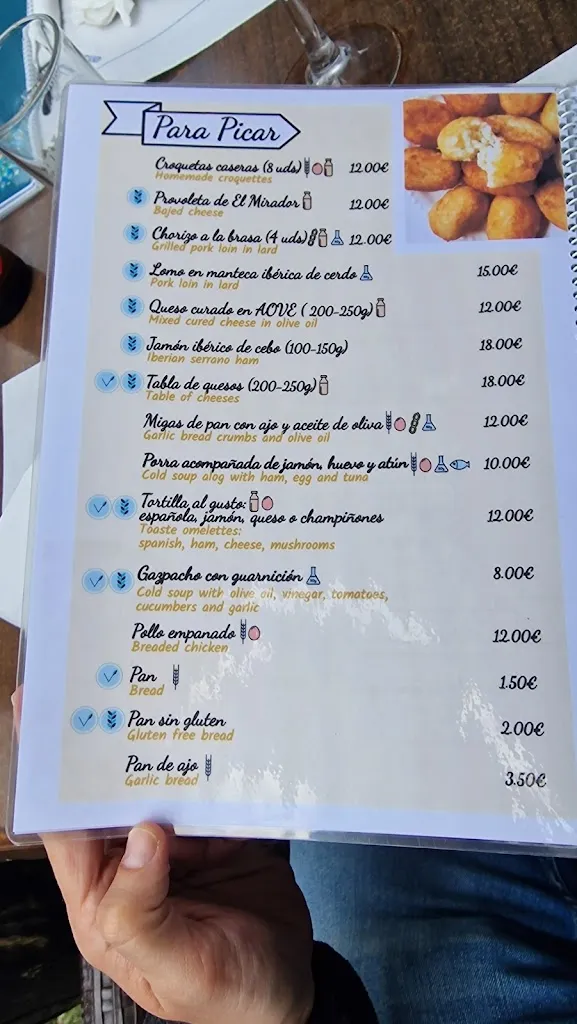 Para Picar
Croquetas caseras (8 uds) 12.00€
Homemade croquettes
Provoleta de El Mirador 12.00€
Bajed cheese
Chorizo a la brasa (4 uds) 12.00€
Grilled pork loin in lard
Lomo en manteca ibérica de cerdo 15.00€
Pork loin in lard
Queso curado en AOVE ( 200-250g) 12.00€
Mixed cured cheese in olive oil
Jamón ibérico de cebo (100-150g) 18.00€
Iberian serrano ham
Tabla de quesos (200-250g) 18.00€
Table of cheeses
Migas de pan con ajo y aceite de oliva 12.00€
Garlic bread crumbs and olive oil
Porra acompañada de jamón, huevo y atún 10.00€
Cold soup alog with ham, egg and tuna
Tortilla al gusto:
española, jamón, queso o champiñones 12.00€
Toaste omelettes:
spanish, ham, cheese, mushrooms
Gazpacho con guarnición 8.00€
Cold soup with olive oil, vinegar, tomatoes,
cucumbers and garlic
Pollo empanado 12.00€
Breaded chicken
Pan 1.50€
Bread
Pan sin gluten 2.00€
Gluten free bread
Pan de ajo 3.50€
Garlic bread